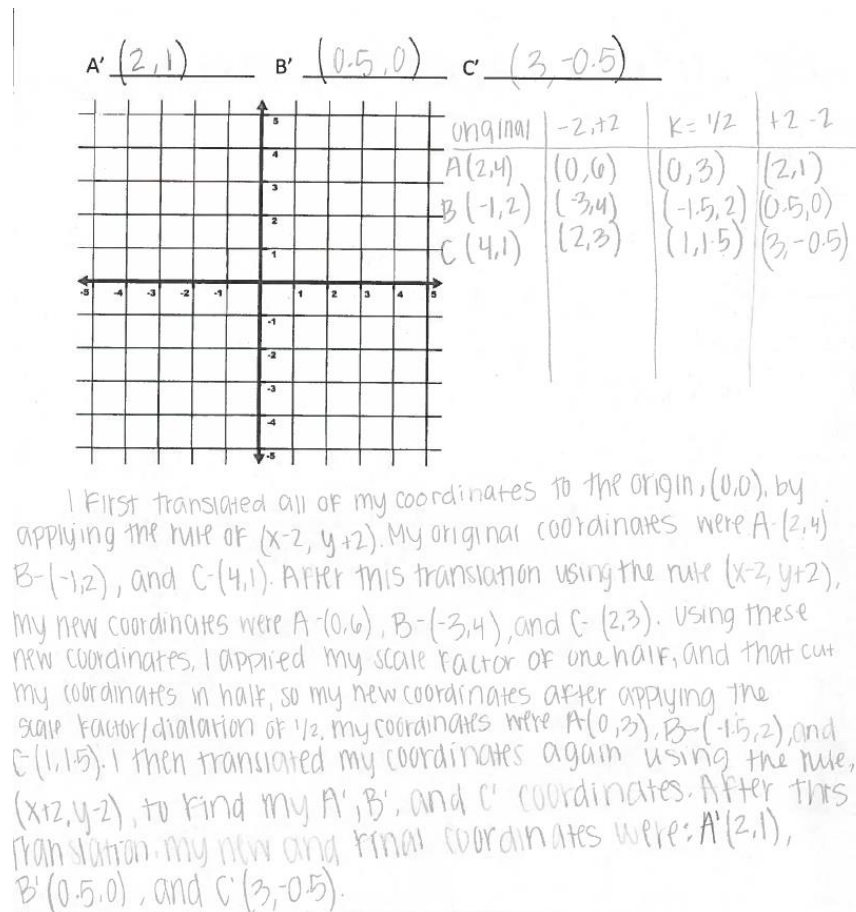 A' (2,1) B' (0.5,0) C' (3,-0.5)
original -2,+2 K= 1/2 +2 -2
A(2,4) (0,6) (0,3) (2,1)
B(-1,2) (-3,4) (-1.5,2) (0.5,0)
C (4,1) (2,3) (1,1.5) (3,-0.5)
5
4
3
2
1
-5 -4 -3 -2 -1 1 2 3 4 5
-1
-2
-3
-4
-5
I First translated all of my coordinates to the origin, (0,0), by
applying the rule of (x-2, y+2). My original coordinates were A-(2,4)
B-(-1,2), and C-(4,1). After this translation using the rule (x-2, y+2),
my new coordinates were A-(0,6), B-(-3,4), and C-(2,3). Using these
new coordinates, I applied my scale factor of one half, and that cut
my coordinates in half, so my new coordinates after applying the
scale factor/dialation of 1/2, my coordinates were A(0,3), B-(-1.5,2), and
C-(1,1.5). I then translated my coordinates again using the rule,
(x+2, y-2), to find my A', B', and C' coordinates. After this
translation, my new and final coordinates were: A'(2,1),
B'(0.5,0), and C'(3,-0.5).